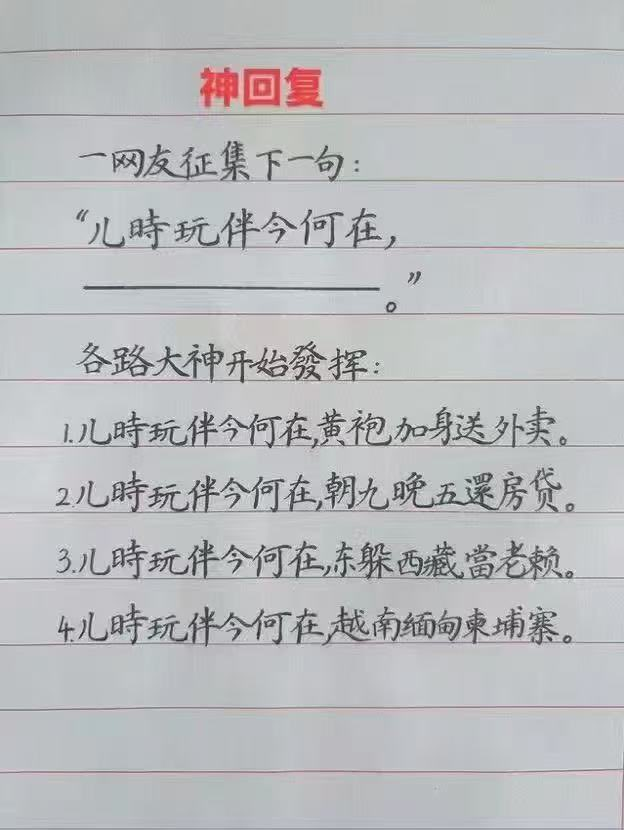 神回复
一网友征集下一句：
“儿時玩伴今何在，
。”
各路大神开始發挥：
1.儿時玩伴今何在,黄袍加身送外卖。
2.儿時玩伴今何在,朝九晚五還房贷。
3.儿時玩伴今何在,东躲西藏當老赖。
4.儿時玩伴今何在,越南缅甸柬埔寨。